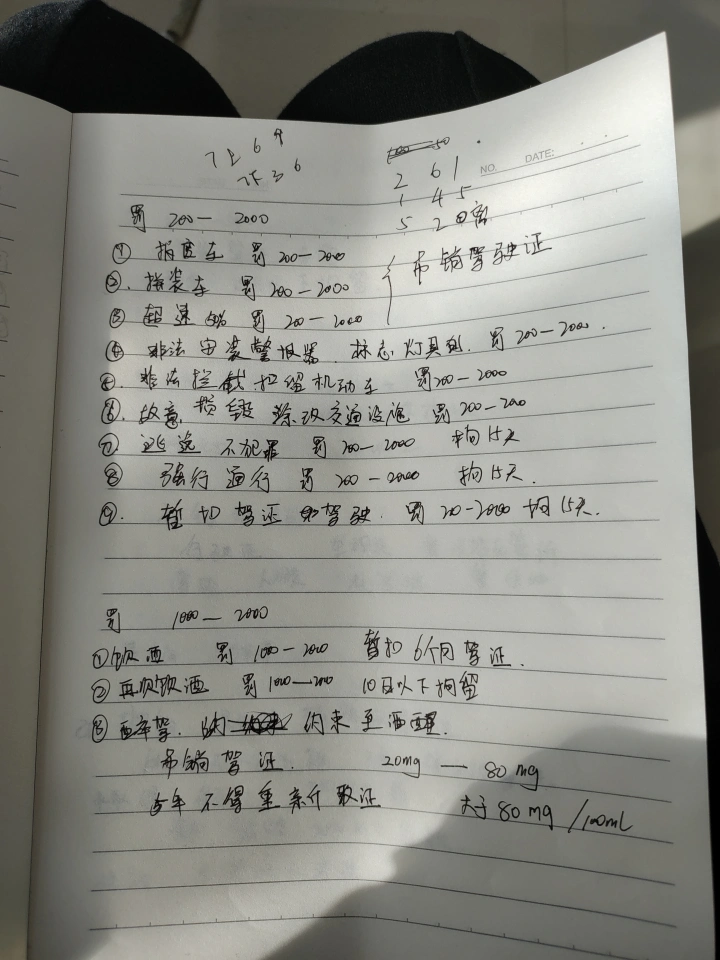 7上 6
NO. DATE:
2 6 1
1 4 5
5 2
罚 200— 2000
① 报废车 罚 200—2000
②. 拼装车 罚 200—2000
吊销驾驶证
③ 超速50% 罚 200—2000
④ 非法安装警报器、标志灯具的. 罚 200—2000.
⑤. 非法拦截扣留机动车 罚200—2000
⑥. 故意 损毁 涂改交通设施 罚 200—2000
⑦. 逃逸 不犯罪 罚 200—2000 拘15天
⑧ 强行通行 罚 200—2000 拘15天.
⑨. 暂扣驾证 驾驶. 罚 200-2000 拘15天.
罚 1000—2000
①饮酒 罚 1000—2000 暂扣 6个月驾证.
② 再次饮酒 罚1000—2000 10日以下拘留
③ 醉驾. 约束至酒醒.
吊销驾证. 20mg — 80mg
5年不得重新取证 大于80mg/100mL